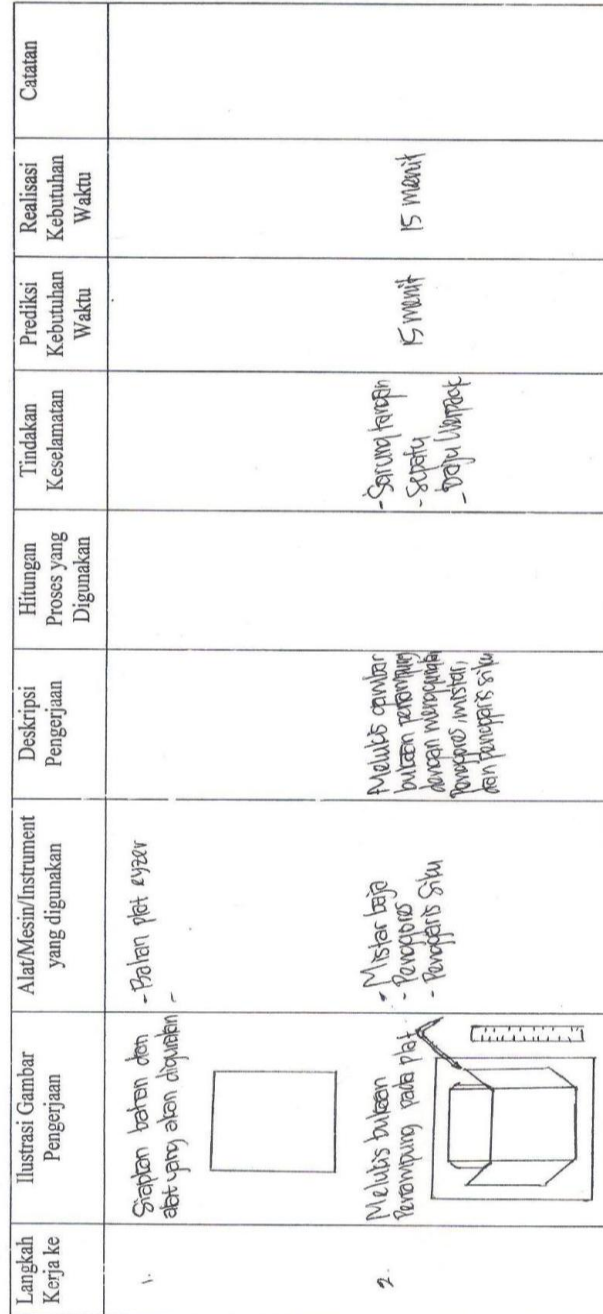 Langkah
Kerja ke
Ilustrasi Gambar
Pengerjaan
Alat/Mesin/Instrument
yang digunakan
Deskripsi
Pengerjaan
Hitungan
Proses yang
Digunakan
Tindakan
Keselamatan
Prediksi
Kebutuhan
Waktu
Realisasi
Kebutuhan
Waktu
Catatan
1.
Siapkan bahan dan
alat yang akan digunakan
- Bahan plat eyzer
-
2.
Melukis bukaan
Penampung pada plat
- Mistar baja
- Penggores
- Penggaris siku
Melukis gambar
bukaan penampung
dengan menggunakan
Penggores, mistar,
dan penggaris siku
- Sarung tangan
- sepatu
- baju Werpack
15 menit
15 menit